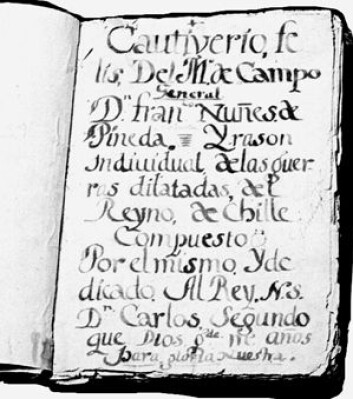 Cautiverio, fe
lis; Del M. de Campo
General
Dn. fran.co Nuñes. de
Pineda. Y rason
indiuidual, de las guer-
ras dilatadas, del
Reyno, de Chille
Compuesto
Por el mismo, Y de
dicado. Al Rey. N. S.
Dn. Carlos, Segundo
que Dios, g.de ms. años
Para gloria Nuestra.